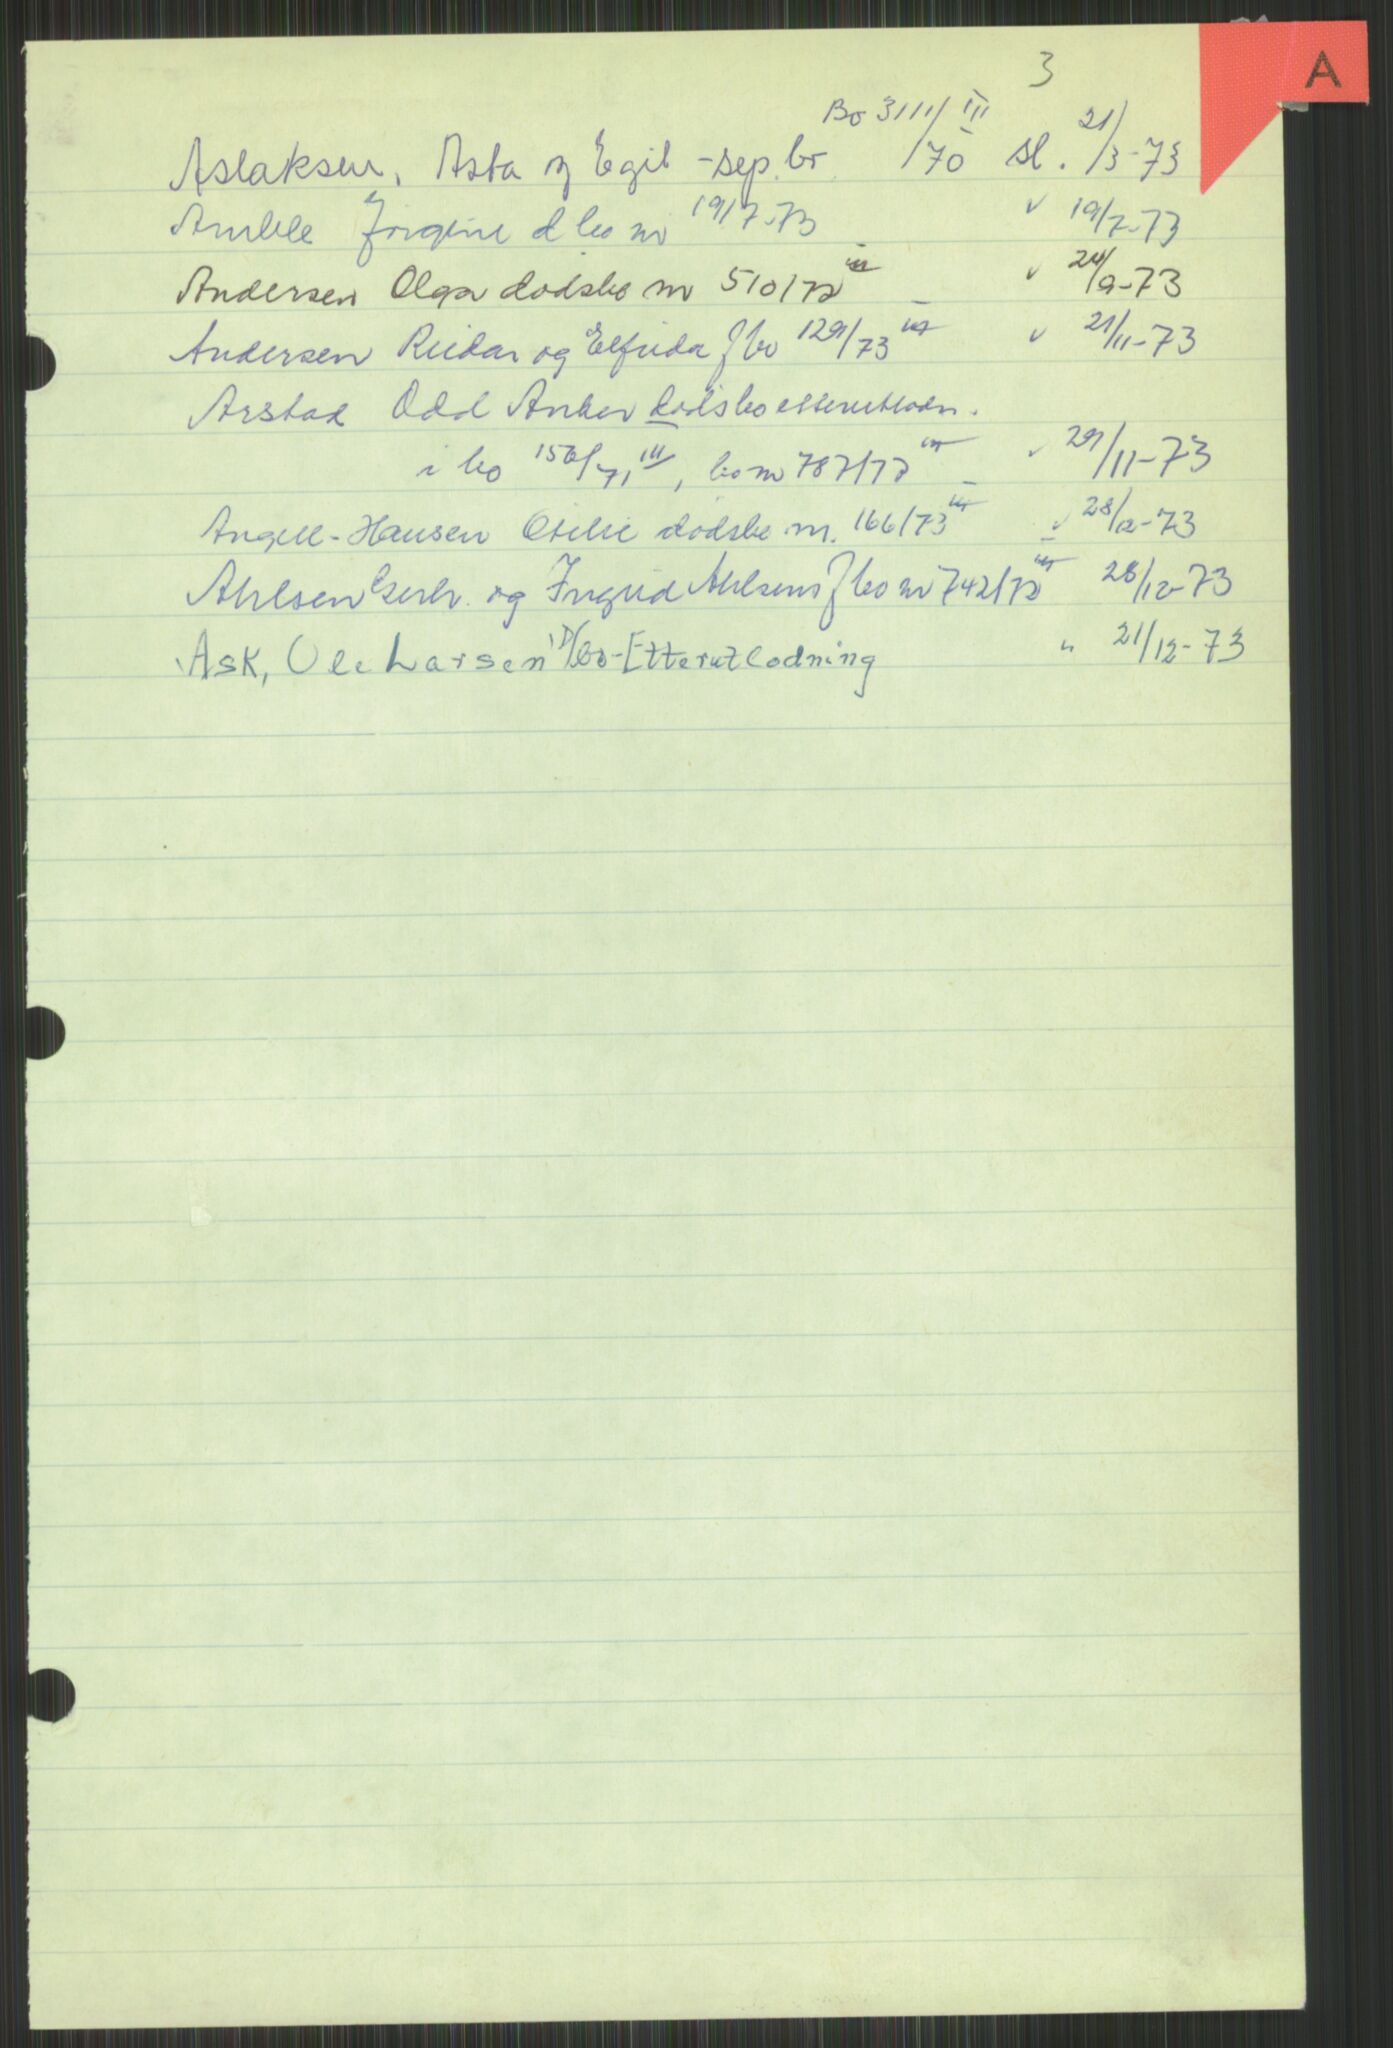 3
A
Aslaksen, Asta og Egil - sep. bo Bo 3111/70 III sl. 21/3-73
Jørgine d bo nr 19/7-73 " 19/7-73
Andersen Olga dødsbo nr 510/72 III " 24/9-73
Andersen Reidar og Elfrida f bo 129/73 III " 21/11-73
Arstad Odd Anker dødsbo etterutlodn.
i bo 156/71 III, bo nr 787/72 III " 29/11-73
Angell-Hansen Otilie dødsbo nr. 166/73 III " 28/12-73
Ahlsen og Ingrid Ahlsens f bo nr 742/72 III 28/12-73
Ask, Ole Larsen D/bo-Etterutlodning " 21/12-73